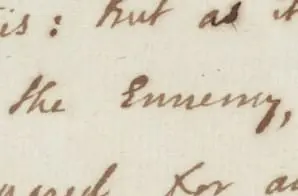 is: But as it
the Ennemy,
for a